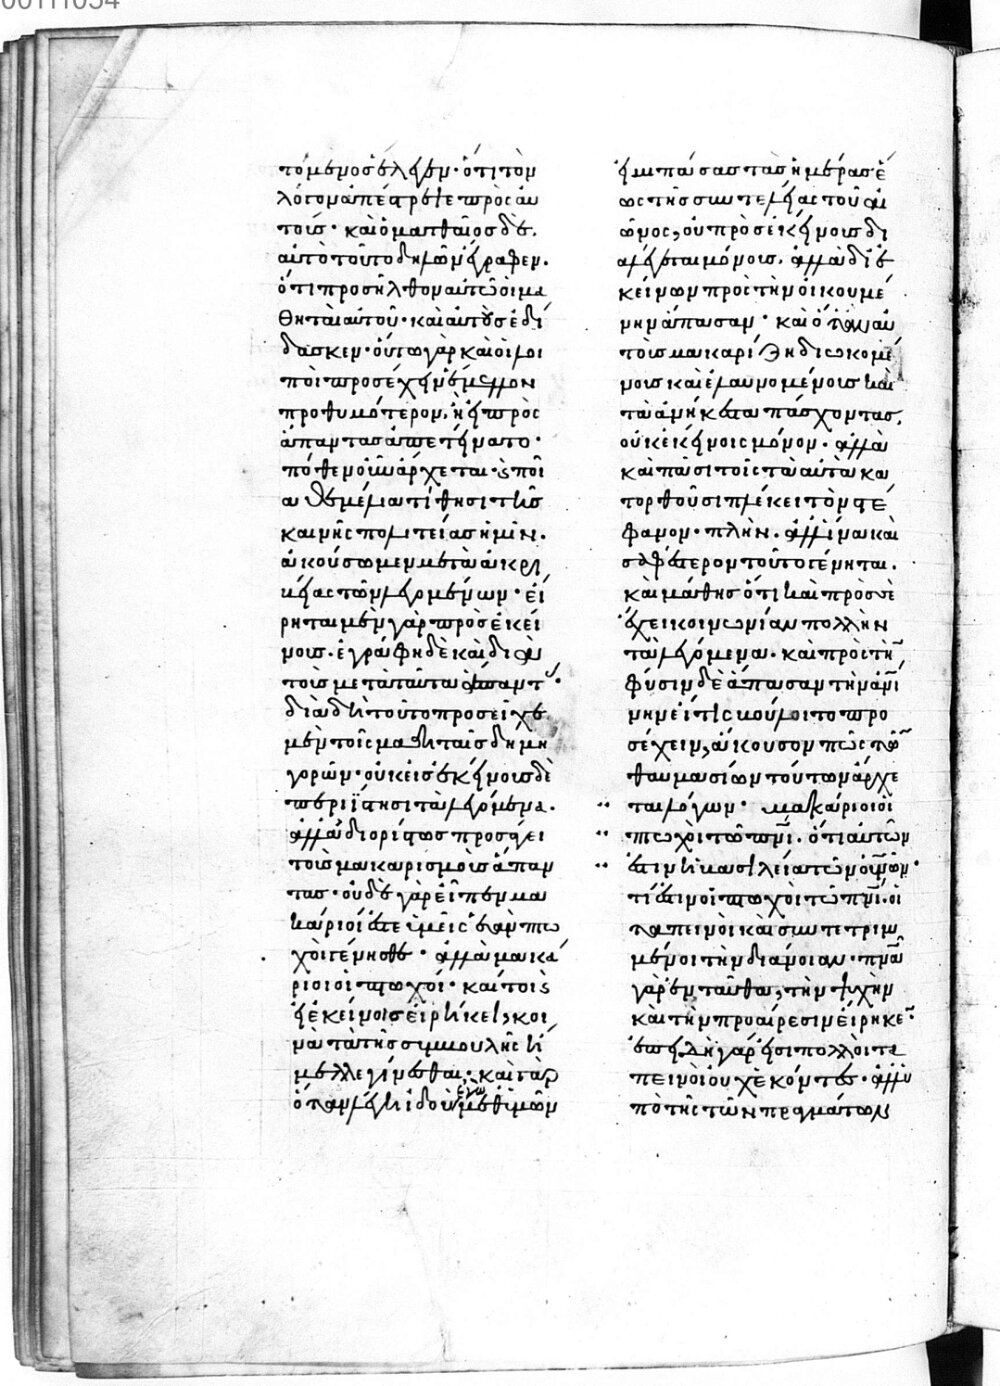 τόμενος ἔλεγεν· ὅτι τὸν
λόγον ἀπέστρεφε πρὸς αὐ
τούς· καὶ ὁ ματθαῖος δὲ.
αὐτὸ τοῦτο δηλῶν ἔγραφεν.
ὅτι προσῆλθον αὐτῶ οἱ μα
θηταὶ αὐτοῦ· καὶ αὐτοὺς ἐδί
δασκεν· οὕτω γὰρ καὶ οἱ λοι
ποὶ προσέχειν ἔμελλον
προθυμότερον, ἢ εἰ πρὸς
ἅπαντας ἀπετείνατο·
πόθεν οὖν ἄρχεται· καὶ ποῖ
α θεμέλια τίθησι τῆς
καινῆς πολιτείας ἡμῖν.
ἀκούσωμεν μετὰ ἀκρι
βείας τῶν λεγομένων· εἴ
ρηται μὲν γὰρ πρὸς ἐκεί
νους. ἐγράφη δὲ καὶ διὰ
τοὺς μετὰ ταῦτα ἅπαντ·
διὰ δὴ τοῦτο προσεῖχε
μὲν τοῖς μαθηταῖς δημη
γορῶν· οὐκ εἰς ἐκείνους δὲ
περιΐστησι τὰ λεγόμενα.
ἀλλὰ ἀδιορίστως προσάγει
τοὺς μακαρισμοὺς ἅπαν
τας· οὐδὲ γὰρ εἶπεν μα
κάριοί ἐστε ὑμεῖς ἐὰν πτω
χοὶ γένησθε· ἀλλὰ μακά
ριοι οἱ πτωχοί· καίτοι γε
εἰ ἐκείνοις εἰρήκει, κοι
νὰ τὰ τῆς συμβουλῆς ἢ
μελλε γίνεσθαι· καὶ γὰρ
ὅταν λέγη ἰδοὺ ἐγὼ μεθ ὑμῶν
εἰμι πάσας τὰς ἡμέρας ἕ
ως τῆς συντελείας τοῦ αἰ
ῶνος, οὐ πρὸς ἐκείνους δι
αλέγεται μόνους. ἀλλὰ δι ἐ
κείνων πρὸς τὴν οἰκουμέ
νην ἅπασαν· καὶ ὅταν αὐ
τοὺς μακαρίζη διωκομέ
νους καὶ ἐλαυνομένους καὶ
τὰ ἀνήκεστα πάσχοντας,
οὐκ ἐκείνοις μόνον. ἀλλὰ
καὶ πᾶσι τοῖς τὰ αὐτὰ κα
τορθοῦσι πλέκει τὸν στέ
φανον· πλὴν. ἀλλ ἵνα καὶ
σαφέστερον τοῦτο γένηται.
καὶ μάθης ὅτι καὶ πρὸς σὲ
ἔχει κοινωνίαν πολλὴν
τὰ λεγόμενα. καὶ πρὸς τὴν
φύσιν δὲ ἅπασαν τὴν ἀνι
νην εἴ τις βούλοιτο προ
σέχειν, ἄκουσον πῶς τῶν
θαυμασίων τούτων ἄρχε
ται λόγων· μακάριοι οἱ
πτωχοὶ τῶ πνι. ὅτι αὐτῶν
ἐστιν ἡ βασιλεία τῶν οὐνῶν·
τί ἐστιν οἱ πτωχοὶ τῶ πνι. οἱ
ταπεινοὶ καὶ συντετριμ
μένοι τὴν διάνοιαν· πνα
γὰρ ἐνταῦθα, τὴν ψυχὴν
καὶ τὴν προαίρεσιν εἴρηκεν
ἐπειδὴ γάρ εἰσι πολλοὶ τα
πεινοὶ οὐχ ἑκόντες· ἀλλ ὑ
πὸ τῆς τῶν πραγμάτων